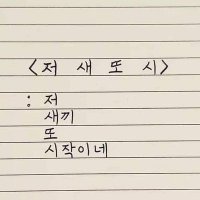 <저 새 또 시>
: 저
새끼
또
시작이네